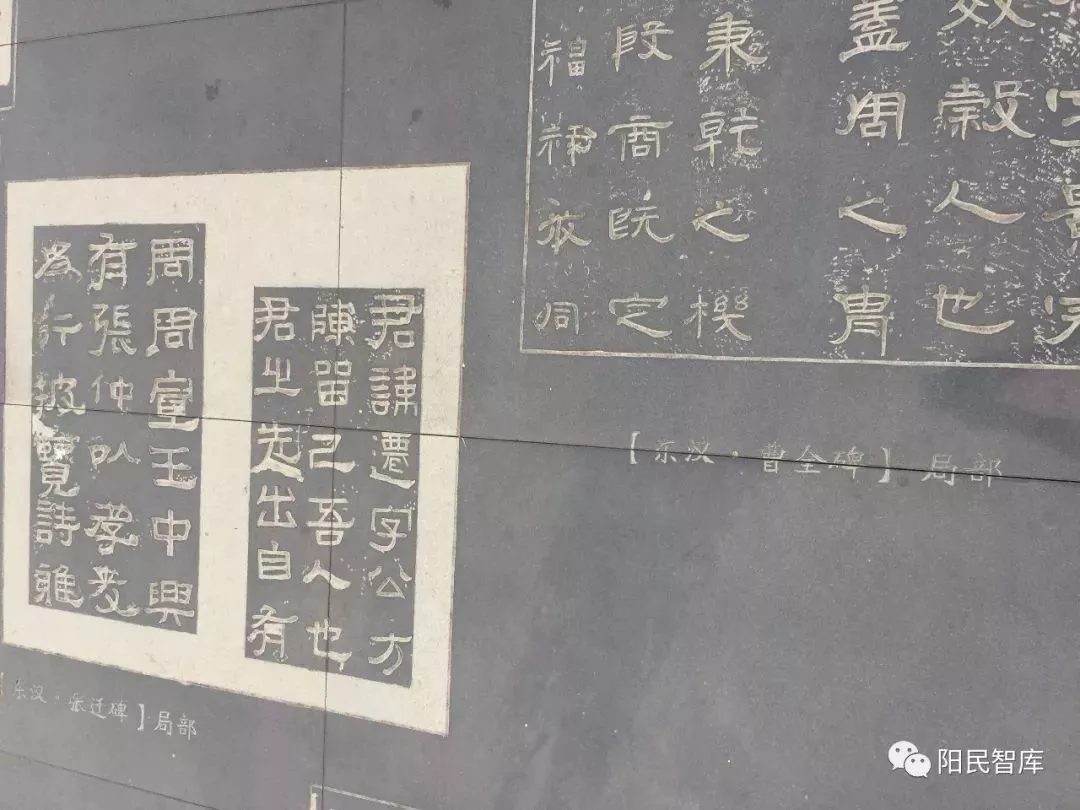 字景完
效穀人也
蓋周之冑
秉乾之機
段商既定
福祿攸同
【东汉·曹全碑】局部
君諱遷字公方
陳留己吾人也
君之先出自有
周周宣王中興
有張仲以孝友
為行披覽詩雅
【东汉·张迁碑】局部
阳民智库